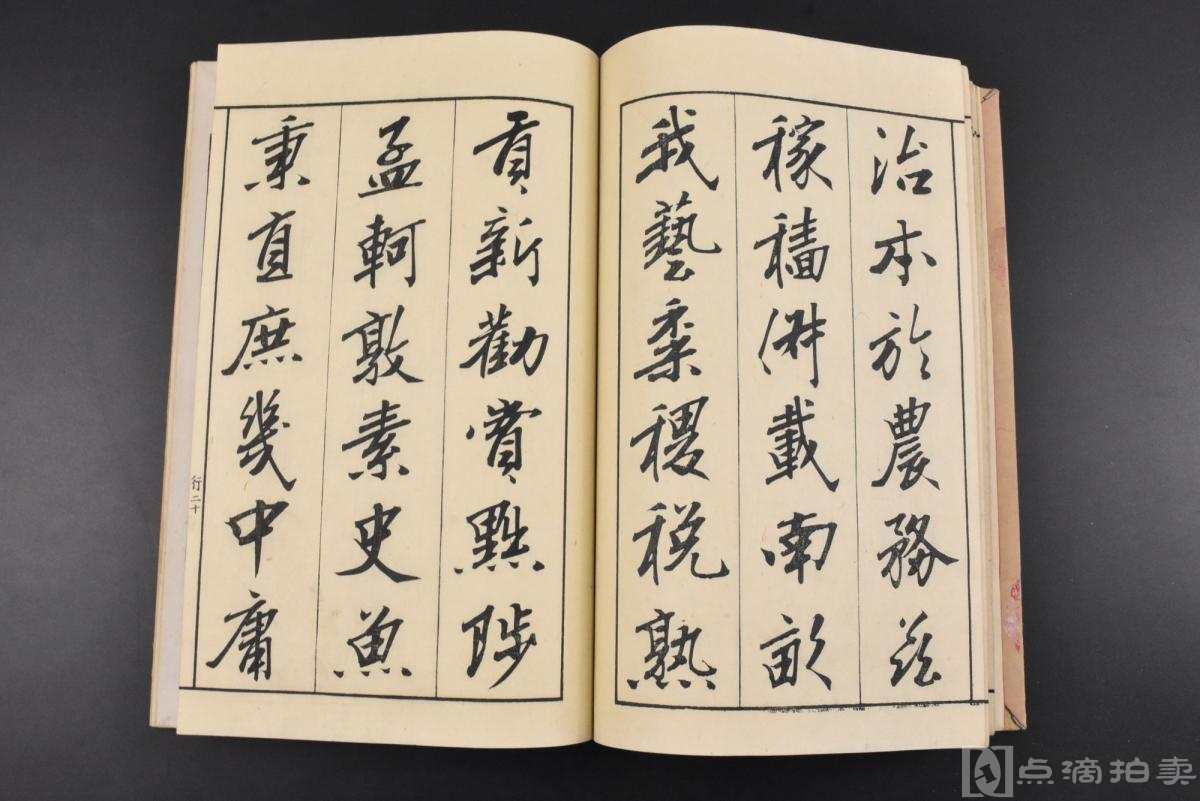 治本於農務茲
稼穡俶載南畝
我藝黍稷税熟
貢新勸賞黜陟
孟軻敦素史魚
秉直庶幾中庸
行二十
点滴拍卖